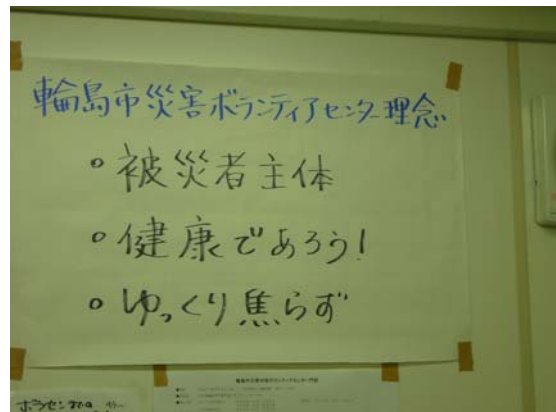 輪島市災害ボランティアセンター理念
○被災者主体
○健康であろう!
○ゆっくり焦らず